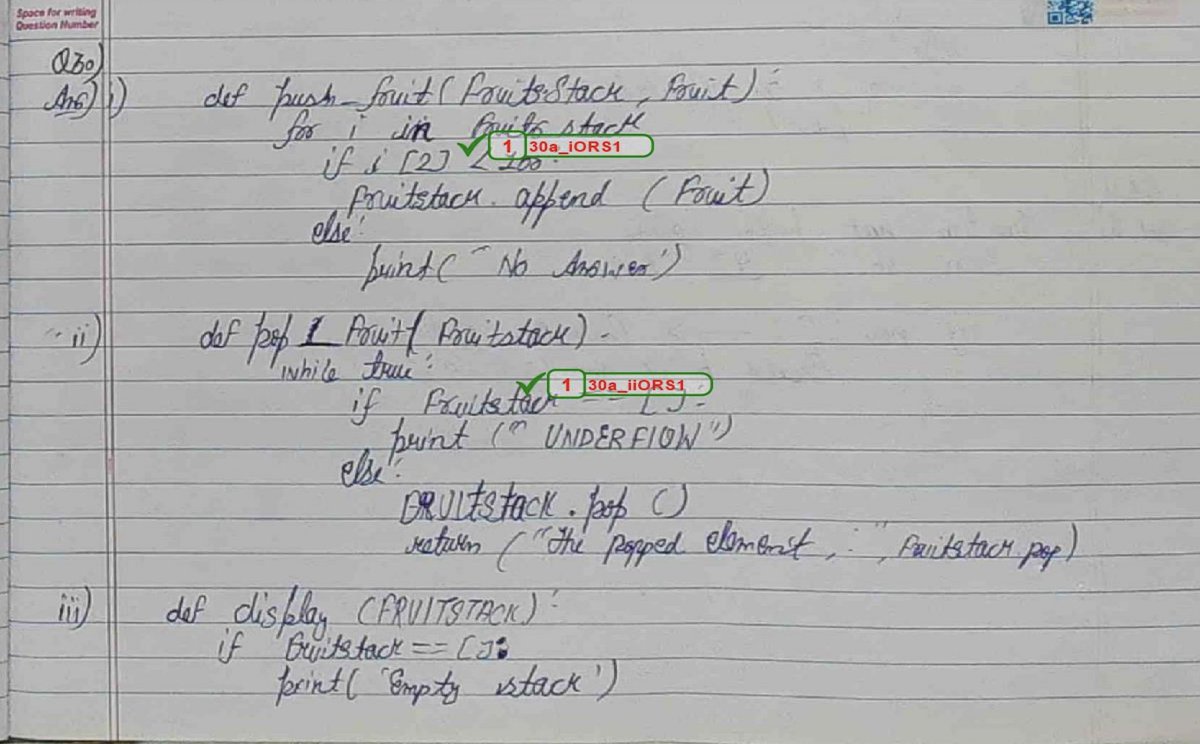 Space for writing
Question Number
Q30)
Ans) i) def push_fruit(FruitsStack, Fruit):
for i in Fruits stack
1 30a_iORS1
if i [2] < 100:
Fruitstack. append (Fruit)
else:
print(" No Answer')
ii) def pop_Fruit( Fruitstack):
while true:
1 30a_iiORS1
if Fruitstack == [ ]:
print (" UNDERFLOW")
else:
FRUITSTACK . pop ()
return ("The popped element, : ", Fruitstack pop)
iii) def display (FRUITSTACK):
if Fruitstack == [ ]:
print( 'Empty stack')